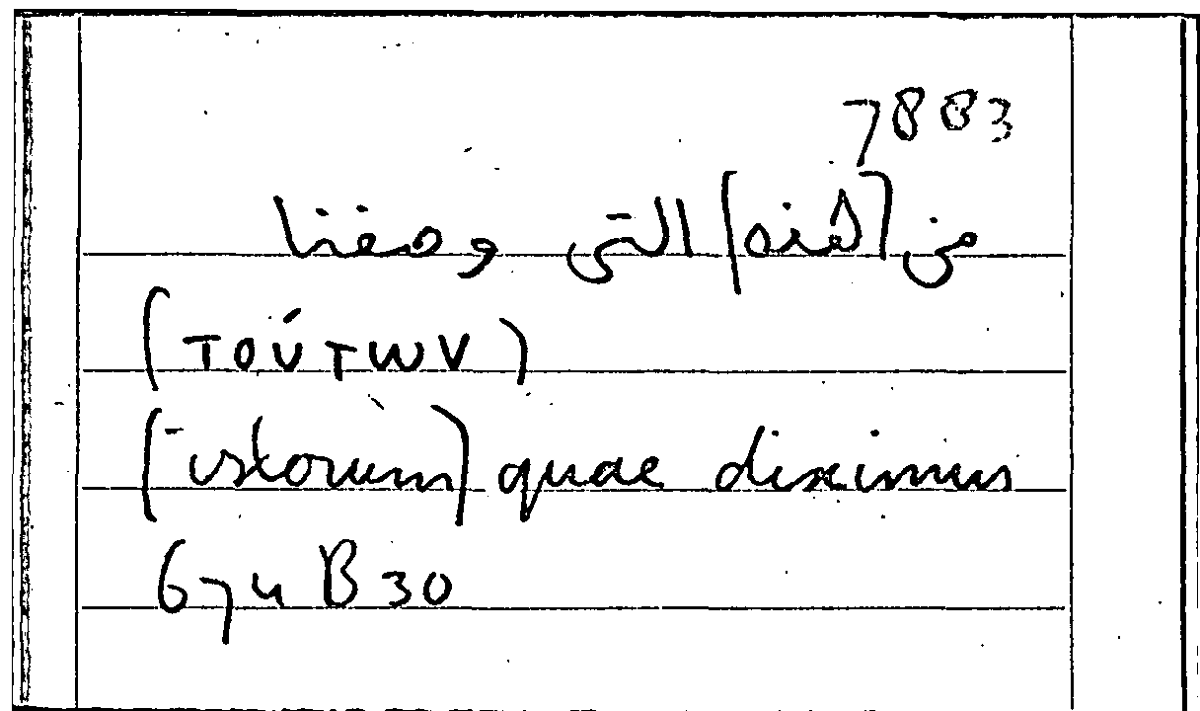 7883
من [هذه] التي وصفنا
(τούτων)
(istorum) quae diximus
674 B 30